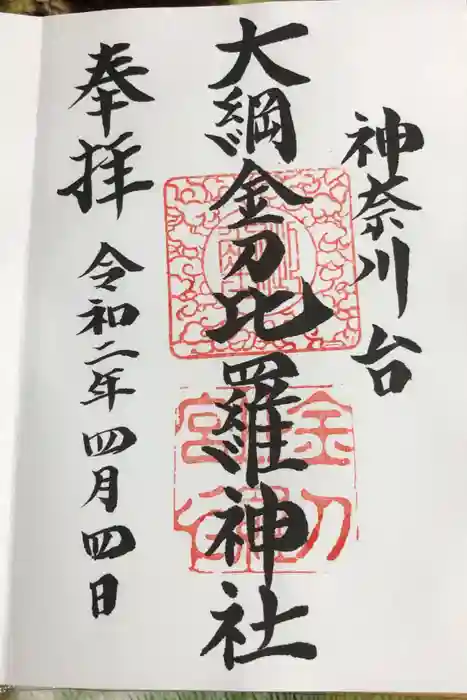 神奈川台
大綱金刀比羅神社
奉拝
令和二年四月四日